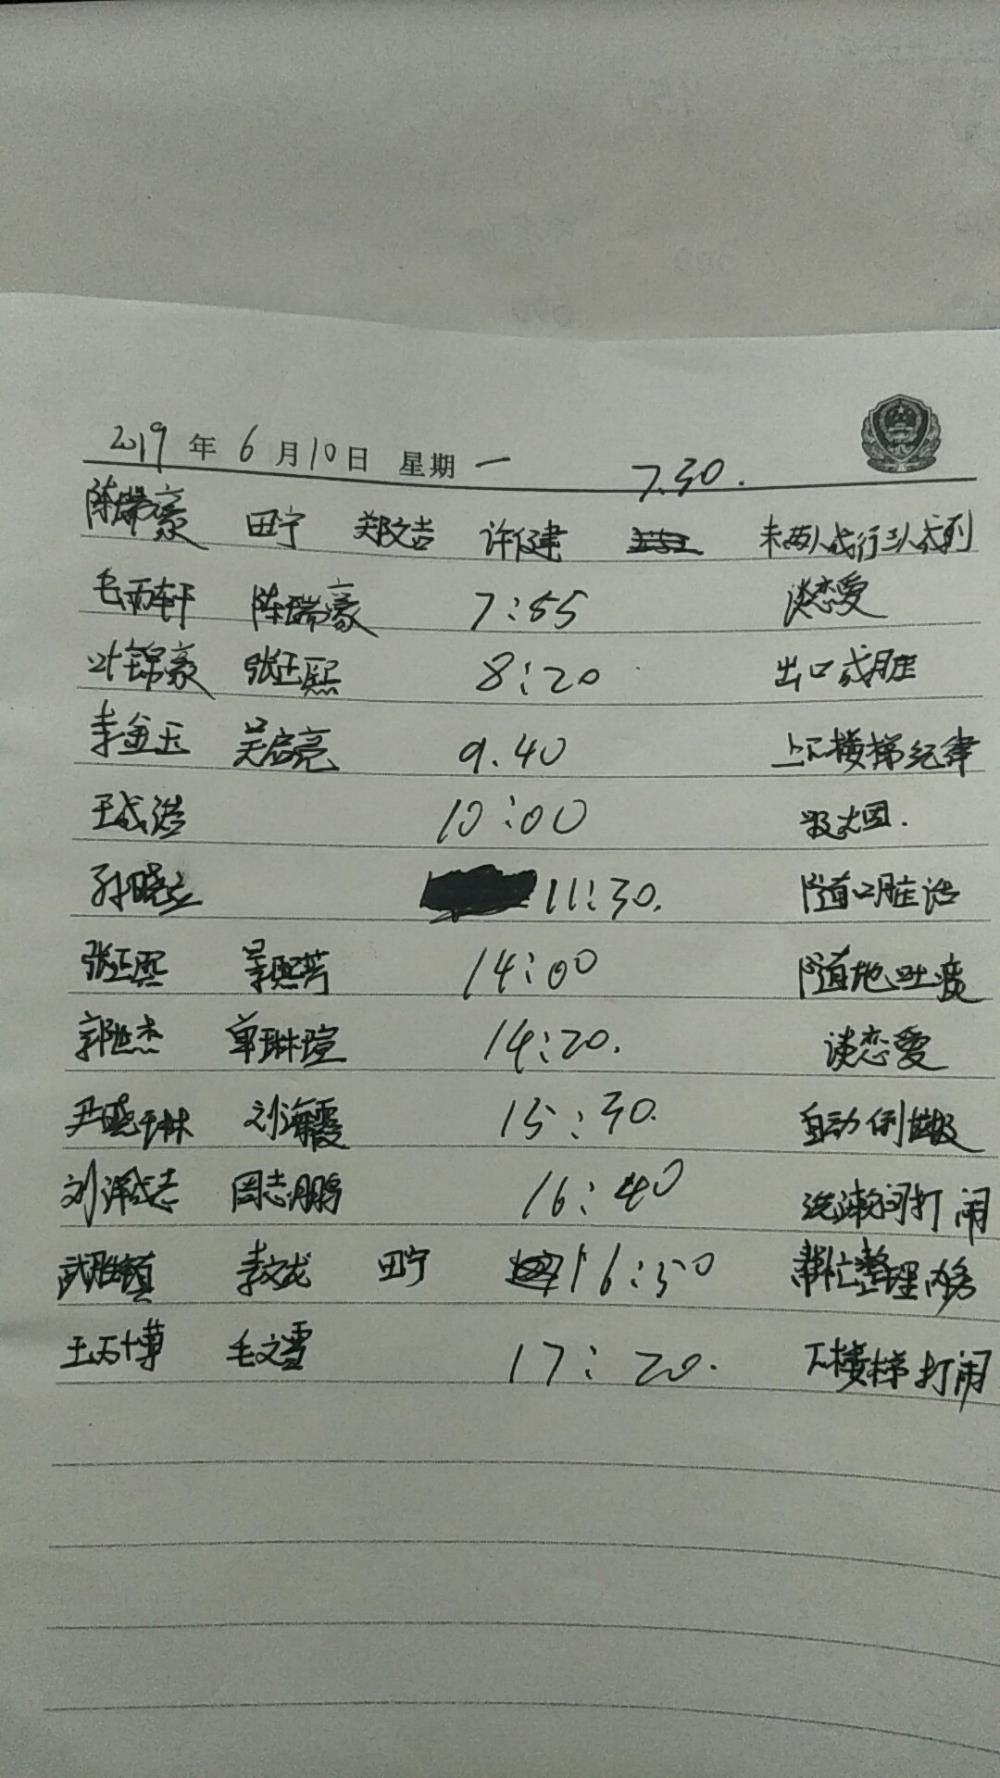 2019年6月10日 星期一 7.30.
陈瑞豪 田宁 郑文吉 许健 未两人成行三人成列
毛雨轩 陈瑞豪 7:55 谈恋爱
叶锦豪 张正熙 8:20 出口成脏
李金玉 吴启亮 9.40 上下楼梯纪律
王成浩 10:00 圾大困.
孙晓立 11:30. 随口脏话
张正熙 景熙芳 14:00 随地吐痰
郭世杰 单琳瑄 14:20. 谈恋爱
尹晓琳 刘海霞 15:30. 自动倒垃圾
刘泽成志 周志鹏 16:40 洗漱间打闹
武胜镇 李文龙 田宁 16:50 帮忙整理内务
王万博 毛文雪 17:20. 下楼梯打闹